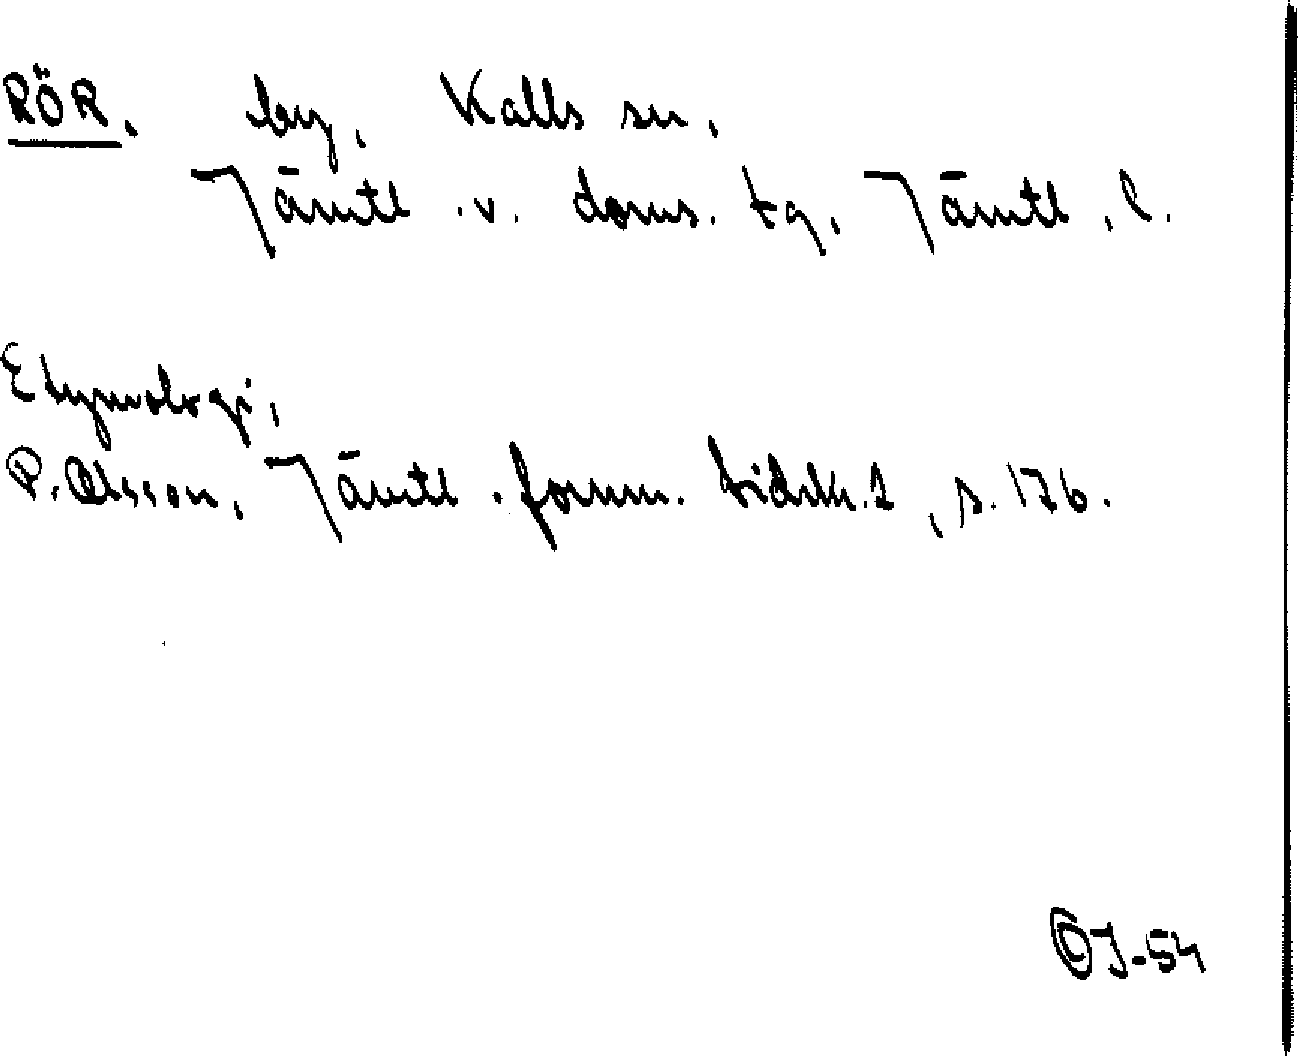 RÖR. by, Kalls sn,
Jämtl. v. doms. tg, Jämtl. l.
Etymologi,
P. Olsson, Jämtl. fornm. tidskr. 1, s. 176.
OJ-54